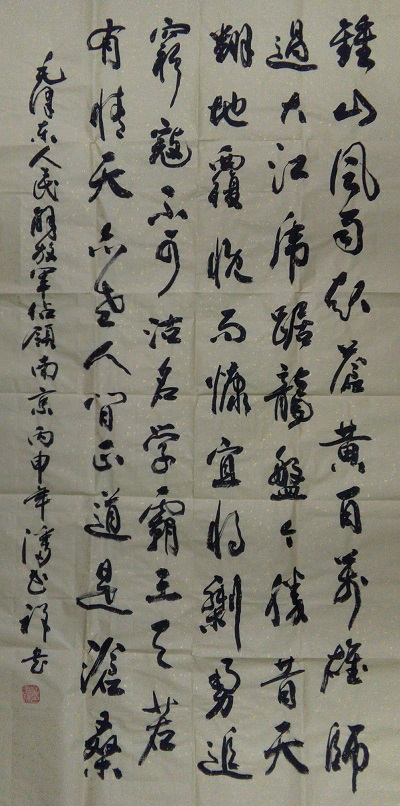 鍾山風雨起蒼黃百萬雄師
過大江虎踞龍盤今勝昔天
翻地覆慨而慷宜將剩勇追
窮寇不可沽名學霸王天若
有情天亦老人間正道是滄桑
毛澤東人民解放軍佔領南京丙申年潘祥書